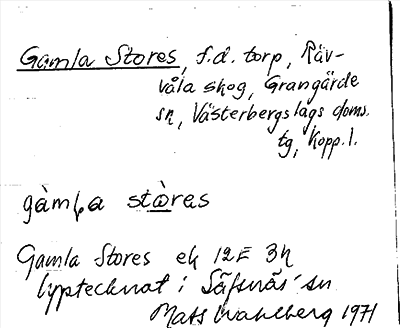 Gamla Stores, f.d. torp, Räv-
våla skog, Grangärde
sn, Västerbergslags doms.
tg, Kopp. l.
gàmḷa stòras
Gamla Stores ek 12E 3h
upptecknat i Säfsnäs sn
Mats Wahlberg 1971